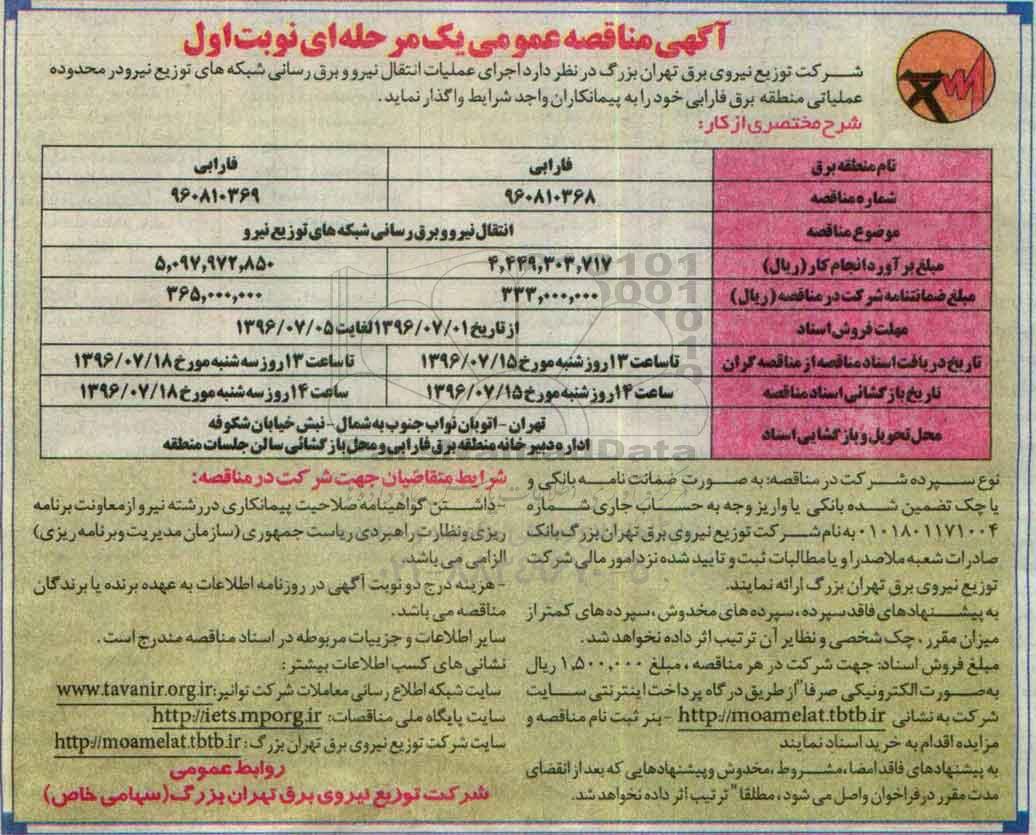 آگهی مناقصه عمومی یک مرحله‌ای نوبت اول
شرکت توزیع نیروی برق تهران بزرگ در نظر دارد اجرای عملیات انتقال نیرو و برق رسانی شبکه های توزیع نیرو در محدوده
عملیاتی منطقه برق فارابی خود را به پیمانکاران واجد شرایط واگذار نماید.
شرح مختصری از کار:
نام منطقه برق فارابی فارابی
شماره مناقصه ۹۶۰۸۱۰۳۶۸ ۹۶۰۸۱۰۳۶۹
موضوع مناقصه انتقال نیرو و برق رسانی شبکه های توزیع نیرو
مبلغ برآورد انجام کار (ریال) ۴,۴۴۹,۳۰۳,۷۱۷ ۵,۰۹۷,۹۷۲,۸۵۰
مبلغ ضمانتنامه شرکت در مناقصه (ریال) ۳۳۳,۰۰۰,۰۰۰ ۳۶۵,۰۰۰,۰۰۰
مهلت فروش اسناد از تاریخ ۱۳۹۶/۰۷/۰۱ لغایت ۱۳۹۶/۰۷/۰۵
تاریخ دریافت اسناد مناقصه از مناقصه گران تا ساعت ۱۳ روز شنبه مورخ ۱۳۹۶/۰۷/۱۵ تا ساعت ۱۳ روز سه شنبه مورخ ۱۳۹۶/۰۷/۱۸
تاریخ بازگشائی اسناد مناقصه ساعت ۱۴ روز شنبه مورخ ۱۳۹۶/۰۷/۱۵ ساعت ۱۴ روز سه شنبه مورخ ۱۳۹۶/۰۷/۱۸
محل تحویل و بازگشایی اسناد تهران - اتوبان نواب جنوب به شمال - نبش خیابان شکوفه
اداره دبیرخانه منطقه برق فارابی و محل بازگشائی سالن جلسات منطقه
نوع سپرده شرکت در مناقصه: به صورت ضمانت نامه بانکی و
یا چک تضمین شده بانکی یا واریز وجه به حساب جاری شماره
۰۱۰۱۸۰۱۱۷۱۰۰۴ به نام شرکت توزیع نیروی برق تهران بزرگ بانک
صادرات شعبه ملاصدرا و یا مطالبات ثبت و تایید شده نزد امور مالی شرکت
توزیع نیروی برق تهران بزرگ ارائه نمایند.
به پیشنهادهای فاقد سپرده، سپرده های مخدوش، سپرده های کمتر از
میزان مقرر، چک شخصی و نظایر آن ترتیب اثر داده نخواهد شد.
مبلغ فروش اسناد: جهت شرکت در هر مناقصه، مبلغ ۱,۵۰۰,۰۰۰ ریال
به صورت الکترونیکی صرفا" از طریق درگاه پرداخت اینترنتی سایت
شرکت به نشانی http://moamelat.tbtb.ir - بنر ثبت نام مناقصه و
مزایده اقدام به خرید اسناد نمایند
به پیشنهادهای فاقد امضا، مشروط، مخدوش و پیشنهادهایی که بعد از انقضای
مدت مقرر در فراخوان واصل می شود، مطلقا" ترتیب اثر داده نخواهد شد.
شرایط متقاضیان جهت شرکت در مناقصه:
- داشتن گواهینامه صلاحیت پیمانکاری در رشته نیرو از معاونت برنامه
ریزی و نظارت راهبردی ریاست جمهوری (سازمان مدیریت و برنامه ریزی)
الزامی می باشد.
- هزینه درج دو نوبت آگهی در روزنامه اطلاعات به عهده برنده یا برندگان
مناقصه می باشد.
سایر اطلاعات و جزییات مربوطه در اسناد مناقصه مندرج است.
نشانی های کسب اطلاعات بیشتر:
سایت شبکه اطلاع رسانی معاملات شرکت توانیر: www.tavanir.org.ir
سایت پایگاه ملی مناقصات: http://iets.mporg.ir
سایت شرکت توزیع نیروی برق تهران بزرگ: http://moamelat.tbtb.ir
روابط عمومی
شرکت توزیع نیروی برق تهران بزرگ (سهامی خاص)